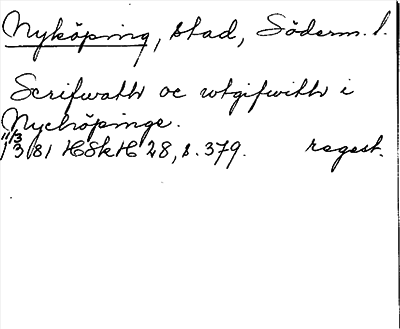 Nyköping, stad, Söderm. l.
Scrifwath oc wtgifwith i
Nychöpinge.
11/3
1381 HSkH 28, s. 379. regest.